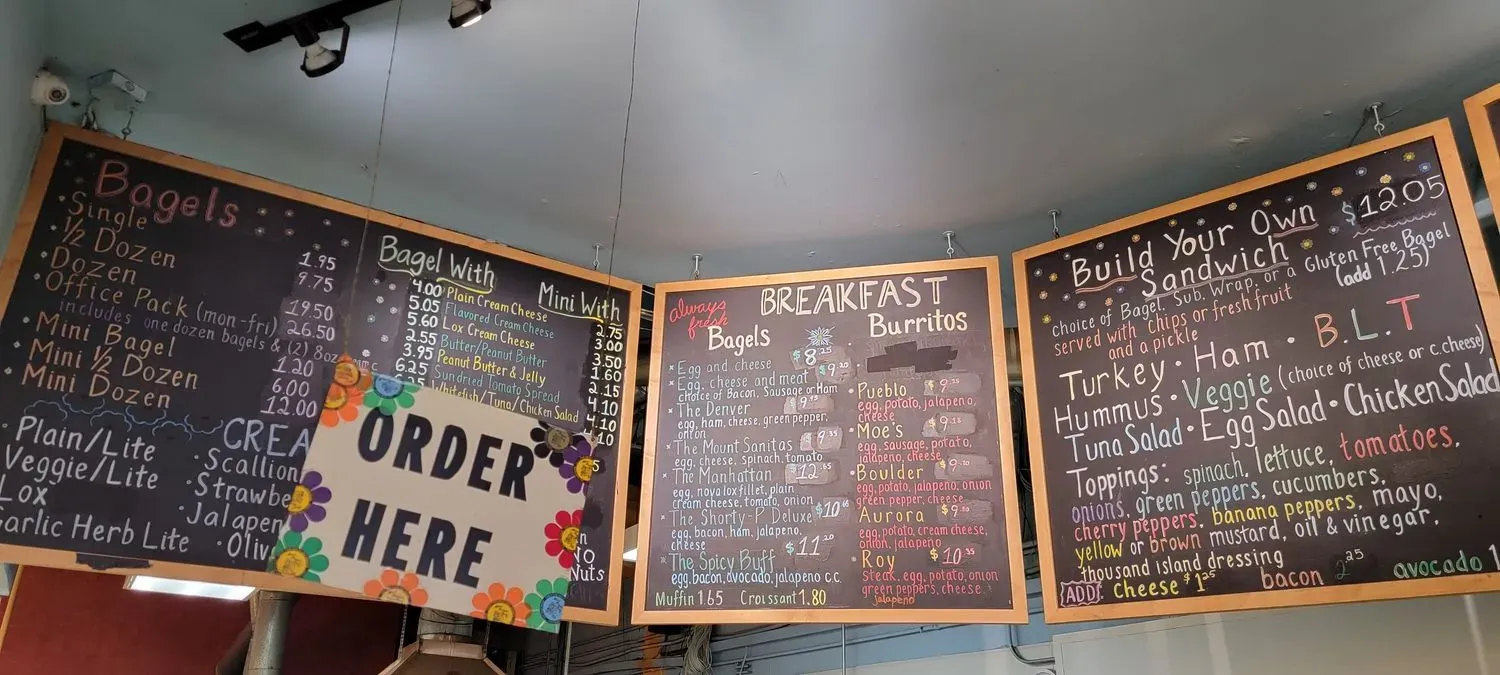 Bagels
• Single 1.95
½ Dozen 9.75
• Dozen 19.50
• Office Pack (mon-fri) 26.50
includes one dozen bagels & (2) 8oz
• Mini Bagel 1.20
• Mini ½ Dozen 6.00
• Mini Dozen 12.00
CREA
• Plain/Lite
Veggie/Lite
Lox
Garlic Herb Lite
• Scallion
• Strawbe
• Jalapen
• Oliv
Bagel With
Mini With
4.00 Plain Cream Cheese 2.75
5.05 Flavored Cream Cheese 3.00
5.60 Lox Cream Cheese 3.50
2.55 Butter/Peanut Butter 1.60
3.95 Peanut Butter & Jelly 2.15
6.25 Sundried Tomato Spread 4.10
Whitefish/Tuna/Chicken Salad 4.10
NO
Nuts
ORDER
HERE
always
fresh
BREAKFAST
Bagels
Egg and cheese $8.25
Egg, cheese and meat $9.20
choice of Bacon, Sausage or Ham
The Denver
egg, ham, cheese, green pepper,
onion
The Mount Sanitas
egg, cheese, spinach, tomato
The Manhattan
egg, nova lox fillet, plain
cream cheese, tomato, onion
The Shorty-P Deluxe
egg, bacon, ham, jalapeno,
cheese
The Spicy Buff $11.20
egg, bacon, avocado, jalapeno c.c.
Muffin 1.65 Croissant 1.80
Burritos
• Pueblo
egg, potato, jalapeno,
cheese
• Moe's
egg, sausage, potato,
jalapeno, cheese
• Boulder
egg, potato, jalapeno, onion
green pepper, cheese
• Aurora
egg, potato, cream cheese,
onion, jalapeno
• Roy
steak, egg, potato, onion
green peppers, cheese
jalapeño
Build Your Own
Sandwich
$12.05
choice of Bagel, Sub, Wrap, or a Gluten Free Bagel
(add 1.25)
served with chips or fresh fruit
and a pickle
Turkey • Ham • B.L.T
Hummus • Veggie (choice of cheese or c.cheese)
Tuna Salad • Egg Salad • Chicken Salad
Toppings: spinach, lettuce, tomatoes,
onions, green peppers, cucumbers,
cherry peppers, banana peppers, mayo,
yellow or brown mustard, oil & vinegar,
thousand island dressing
ADD: cheese $1.25 bacon 2.25 avocado 1